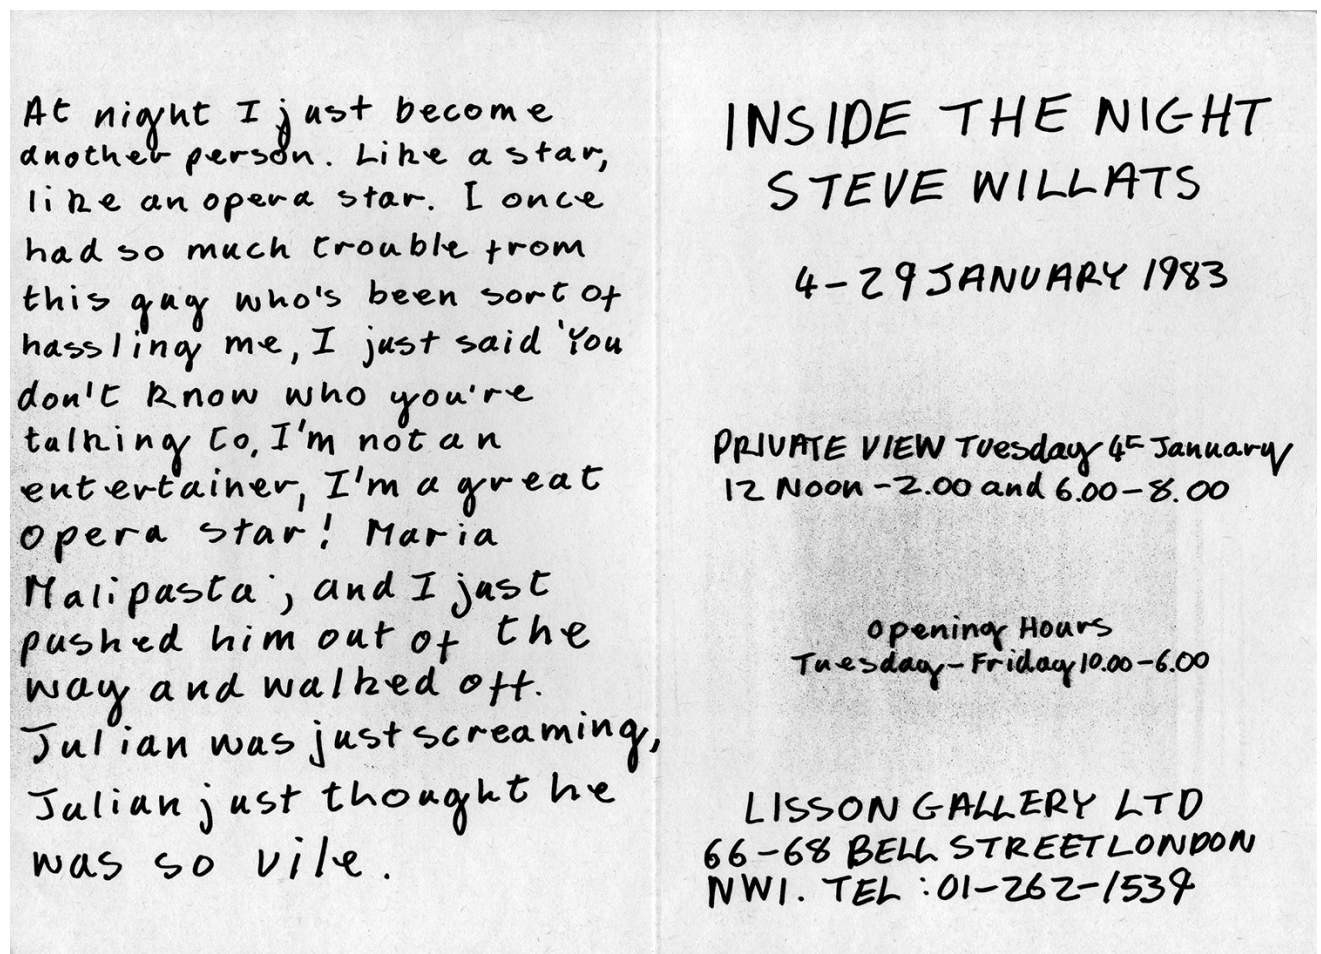 At night I just become
another person. Like a star,
like an opera star. I once
had so much trouble from
this guy who's been sort of
hassling me, I just said 'You
don't know who you're
talking to, I'm not an
entertainer, I'm a great
opera star! Maria
Malipasta', and I just
pushed him out of the
way and walked off.
Julian was just screaming,
Julian just thought he
was so vile.
INSIDE THE NIGHT
STEVE WILLATS
4-29 JANUARY 1983
PRIVATE VIEW Tuesday 4th January
12 Noon -2.00 and 6.00-8.00
Opening Hours
Tuesday-Friday 10.00-6.00
LISSON GALLERY LTD
66-68 BELL STREET LONDON
NW1. TEL :01-262-1539